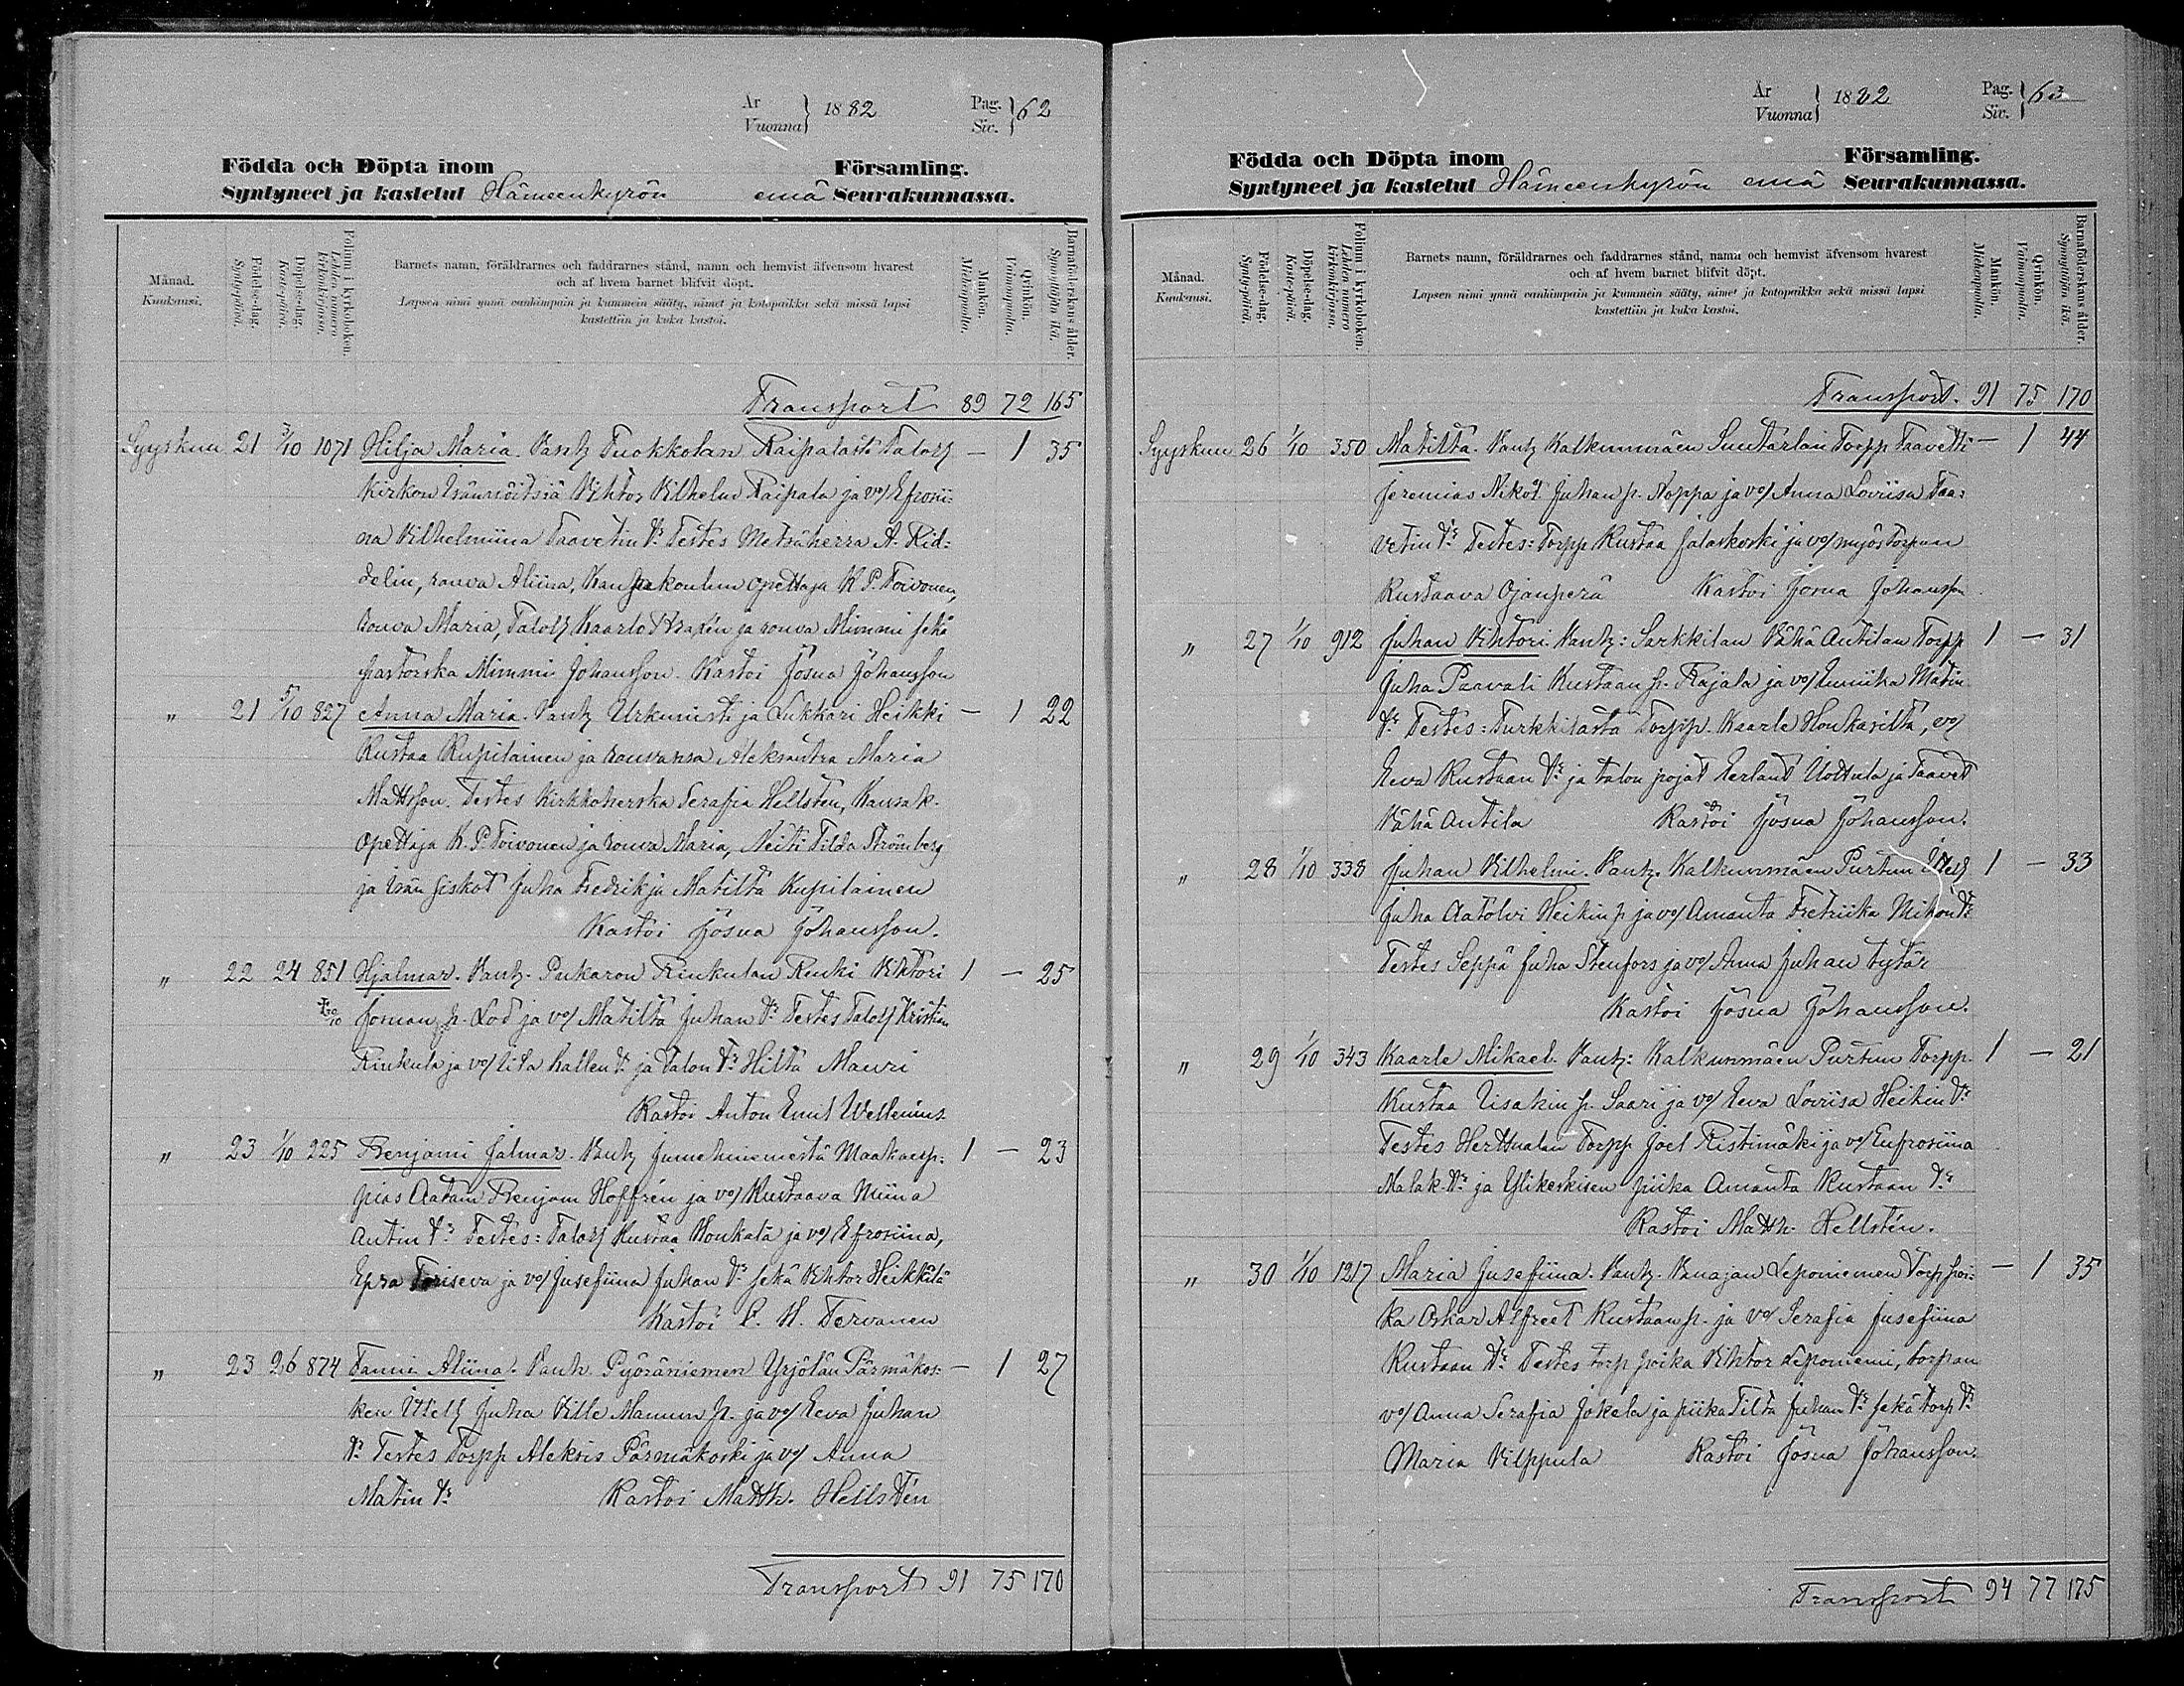 År
Vuonna } 1882 Pag.
Siv. } 62
Födda och Döpta inom Församling.
Syntyneet ja kastetut Hämeenkyrön emä Seurakunnassa.
Månad.
Kuukausi.
Födelse-dag.
Syntypäivä.
Döpelse-dag.
Kastepäivä.
Folium i kyrkoboken.
Lehden numero kirkonkirjassa.
Barnets namn, föräldrarnes och faddrarnes stånd, namn och hemvist äfvensom hvarest
och af hvem barnet blifvit döpt.
Lapsen nimi ynnä vanhimpain ja kummein sääty, nimet ja kotopaikka sekä missä lapsi
kastettiin ja kuka kastoi.
Mankön.
Miehenpuolia.
Qvinkön.
Vaimonpuolia.
Barnaföderskans ålder.
Synnyttäjän ikä.
Transport 89 72 165
Syyskuu 21 3/10 1071 Hilja Maria. Vanh Tuokkolan Raipalasta Talolj — 1 35
Kirkon Isännöitsiä Vihtor Vilhelm Raipala ja vo/ Efrosii=
na Vilhelmiina Taavetin tr Testes Metsäherra A. Rid=
delin, rouva Aliina, Kansakoulun opettaja K. P. Toivonen,
rouva Maria, Talolj Kaarlo Fraxén ja rouva Mimmi sekä
pastorska Mimmi Johansson. Kastoi Josua Johansson
" 21 5/10 827 Anna Maria. Vanh Urkunisti ja Lukkari Heikki — 1 22
Kustaa Kupilainen ja rouvansa Aleksantra Maria
Mattsson. Testes Kirkkoherska Serafia Hellstén, Kansak.
opettaja K. P. Toivonen ja rouva Maria, Neiti Tilda Strömberg
ja isän siskot Juha Fredrik ja Matilta Kupilainen
Kastoi Josua Johansson.
" 22 24 851 Hjalmar. Vanh. Paukaron Rinkulan Renki Vihtori 1 — 25
Joman p. Lod ja vo/ Matilta Juhan tr Testes Talolj Kristian
Rinkula ja vo/ Lita Kallen tr ja Talon tr Hilta Mauri
Kastoi Anton Emil Wellenius
" 23 1/10 225 Benjami Jalmar. Vanh Jumehniemestä Maakaup= 1 — 23
pias Aatam Benjam Hoffrén ja vo/ Kustaava Miina
Antin tr Testes: Talolj Kustaa Honkala ja vo/ Efrosiina,
Epra Toriseva ja vo/ Jusefiina Juhan tr sekä Vihtor Heikkilä
Kastoi P. H. Tervanen
" 23 26 874 Fanni Aliina. Vanh. Pyöräniemen Yrjölän Pärmäkos= — 1 27
ken Ittelj Juha Ville Manun p. ja vo/ Eeva Juhan
tr Testes Torpp Aleksis Pärmäkoski ja vo/ Anna
Matin tr Kastoi Matth. Hellstén
Transport 91 75 170
År
Vuonna } 1882 Pag.
Siv. } 63
Födda och Döpta inom Församling.
Syntyneet ja kastetut Hämeenkyrön emä Seurakunnassa.
Månad.
Kuukausi.
Födelse-dag.
Syntypäivä.
Döpelse-dag.
Kastepäivä.
Folium i kyrkoboken.
Lehden numero kirkonkirjassa.
Barnets namn, föräldrarnes och faddrarnes stånd, namn och hemvist äfvensom hvarest
och af hvem barnet blifvit döpt.
Lapsen nimi ynnä vanhimpain ja kummein sääty, nimet ja kotopaikka sekä missä lapsi
kastettiin ja kuka kastoi.
Mankön.
Miehenpuolia.
Qvinkön.
Vaimonpuolia.
Barnaföderskans ålder.
Synnyttäjän ikä.
Transport. 91 75 170
Syyskuu 26 1/10 350 Matilta. Vanh Kalkunmäen Suutarlan Torpp Taavetti — 1 44
Jeremias Nikol Juhan p. Noppa ja vo/ Anna Loviisa Taa=
vetin tr Testes: Torpp Kustaa Jalaskoski ja vo/ myös Torpan
Kustaava Ojanperä Kastoi Josua Johansson
" 27 1/10 912 Juhan Vihtori. Vanh: Sarkkilan Vähä Antilan Torpp 1 — 31
Juha Paavali Kustaan p. Rajala ja vo/ Ulriika Matin
tr Testes: Turkkilasta Torpp. Kaarle Honkasilta, vo/
Eeva Kustaan tr ja talon pojat Eerlant Uottula ja Taavet
Vähä Antila Kastoi Josua Johansson.
" 28 1/10 338 Juhan Vilhelmi. Vanh. Kalkunmäen Purtun Ittelj 1 — 33
Juha Aatolvi Heikin p ja vo/ Amanta Fretriika Mikon tr
Testes Seppä Juha Stenfors ja vo/ Anna Juhan tytär
Kastoi Josua Johansson.
" 29 1/10 343 Kaarle Mikael. Vanh: Kalkunmäen Purtun Torpp. 1 — 21
Kustaa Iisakin p. Saari ja vo/ Eeva Loviisa Heikin tr
Testes Herttualan Torpp Joel Ristimäki ja vo/ Eufrosiina
Malak. tr ja Ylikeskisen piika Amanta Kustaan tr
Kastoi Matth. Hellstén.
" 30 1/10 1217 Maria Jusefiina. Vanh. Vanajan Leponiemen Torp poi= — 1 35
ka Oskar Alfreet Kustaan p. ja vo/ Serafia Jusefiina
Kustaan tr Testes torp poika Vihtor Leponiemi, torpan
vo/ Anna Serafia Jokela ja piika Tilta Juhan tr sekä torp tr
Maria Vilppula Kastoi Josua Johansson.
Transport 94 77 175